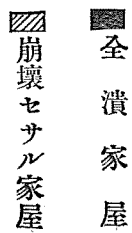 全潰家屋
崩壞セサル家屋